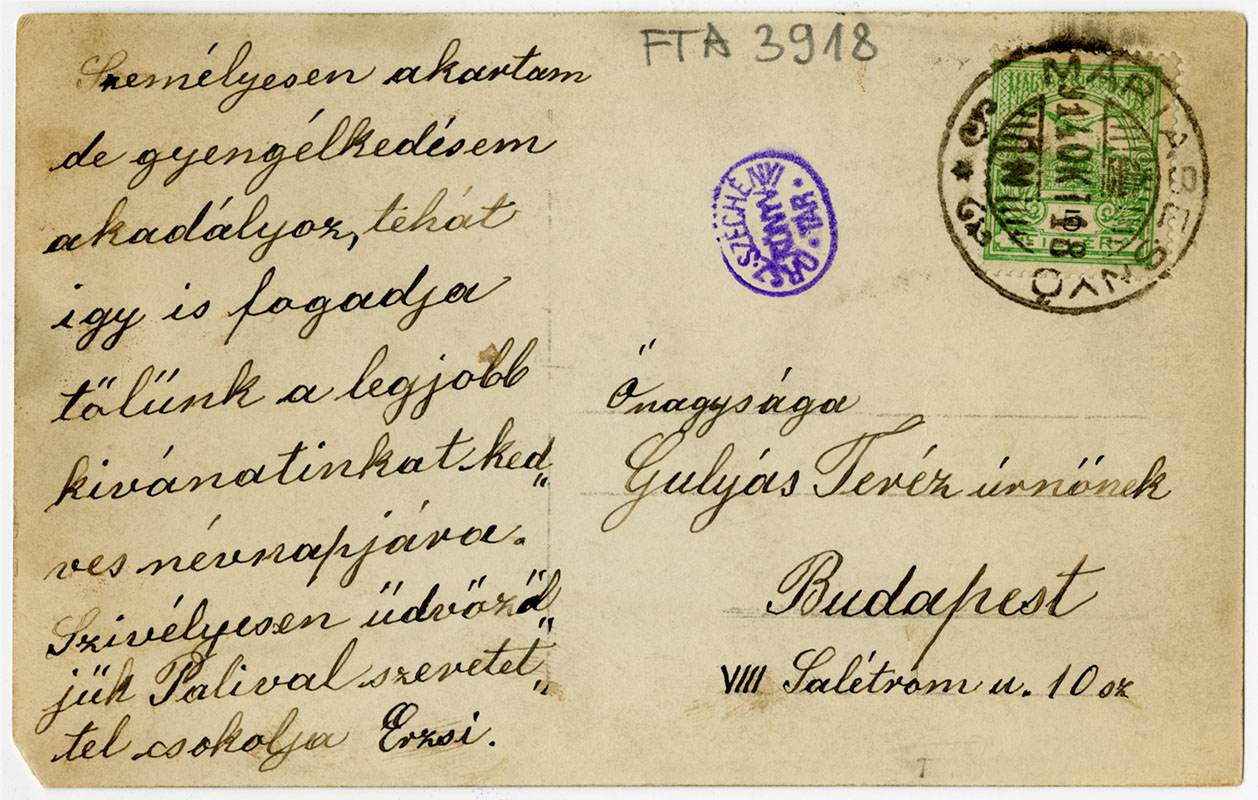 FTA 3918
Személyesen akartam
de gyengélkedésem
akadályoz, tehát
igy is fogadja
tőlünk a legjobb
kivánatinkat ked„
ves névnapjára.
Szivélyesen üdvözöl„
jük Palival szeretet„
tel csokolja Erzsi.
ORSZ. SZÉCHÉNYI
KÖNYV
TÁR
MÁRIABESNYŐ
Őnagysága
Gulyás Teréz úrnőnek
Budapest
VIII Salétrom u. 10 sz